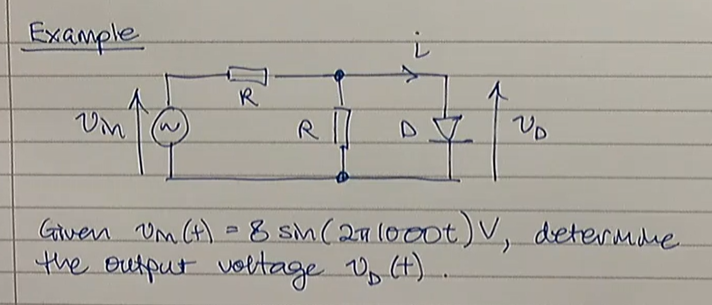 Example
i
R
Vin
R
D
VD
Given Vin(t) = 8 sin(2π1000t)V, determine
the output voltage VD(t).